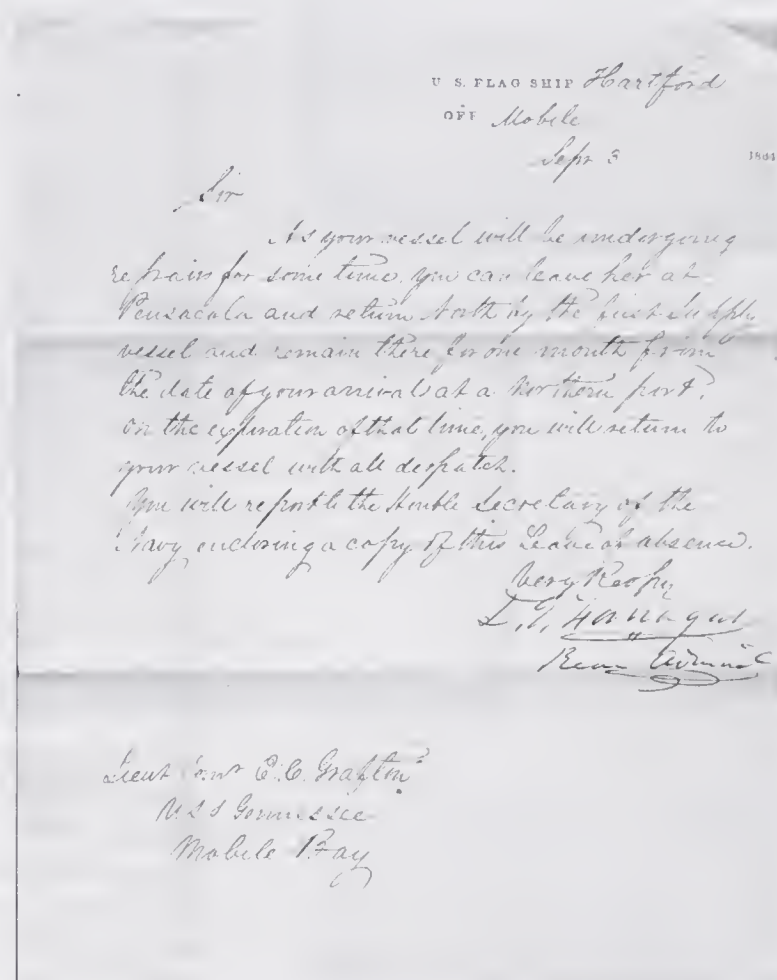 U. S. FLAG SHIP Hartford
OFF Mobile
Sept 3 1864
Sir
As your vessel will be undergoing
repairs for some time, you can leave her at
Pensacola and return North by the first supply
vessel and remain there for one month from
the date of your arrival at a Northern port.
On the expiration of that time, you will return to
your vessel with all despatch.
You will report to the Honble Secretary of the
Navy enclosing a copy of this Leave of absence.
Very Respy
D. G. Farragut
Rear Admiral
Lieut Comr E. C. Grafton
U S S Gennessee
Mobile Bay